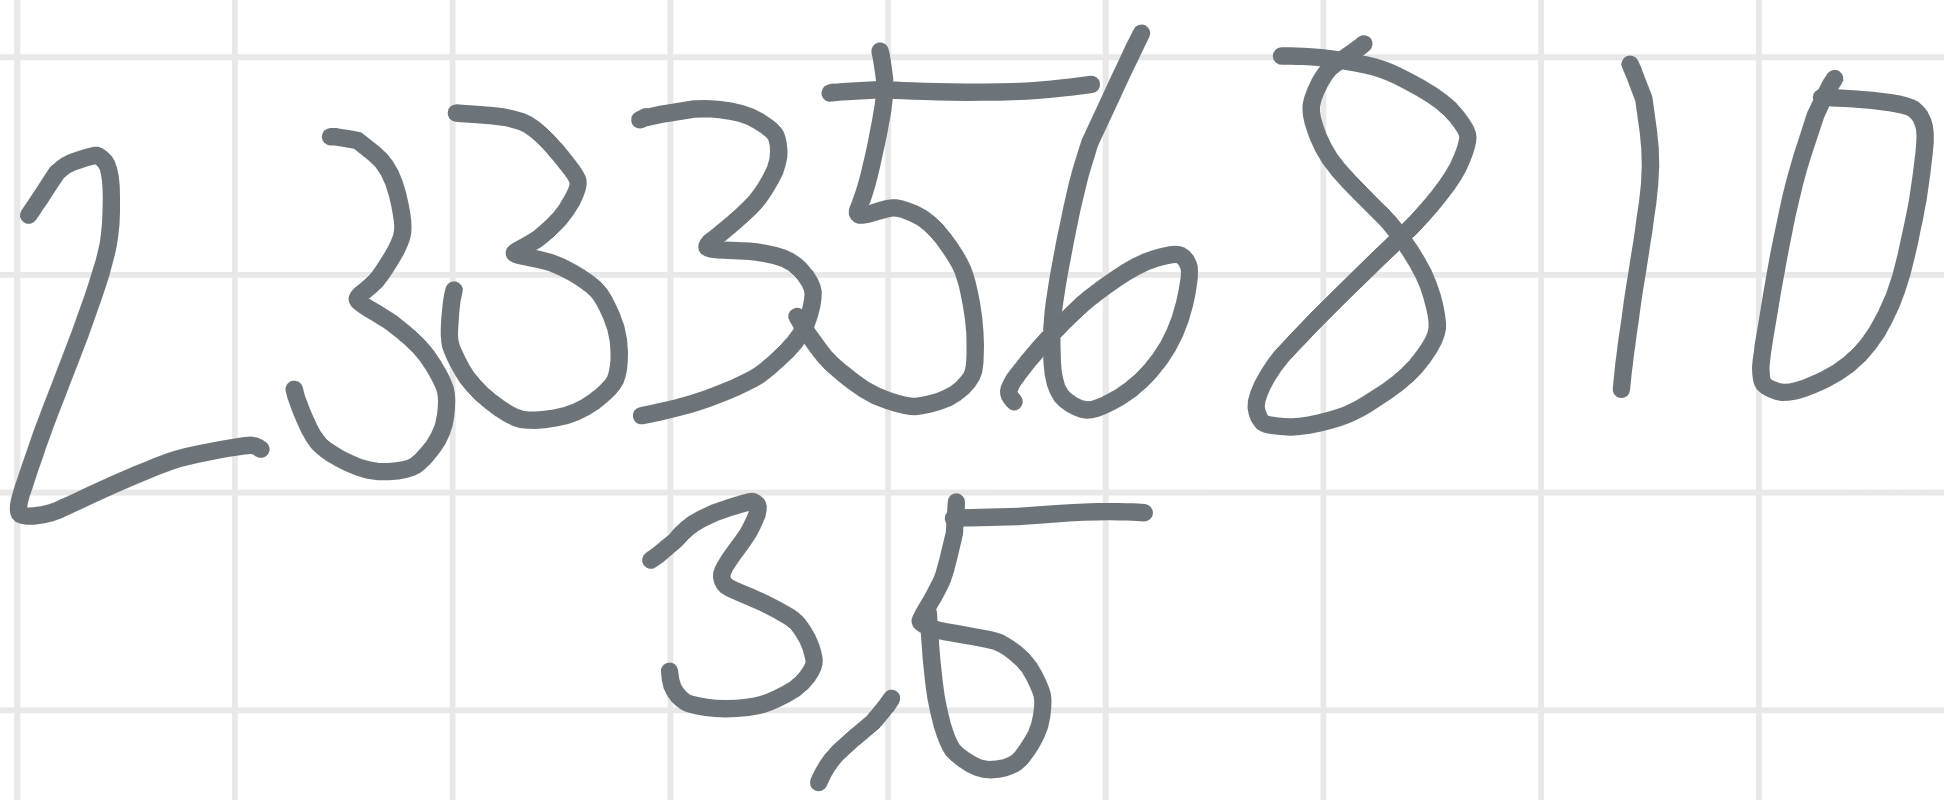 2 3 3 3 5 6 8 10
3,5